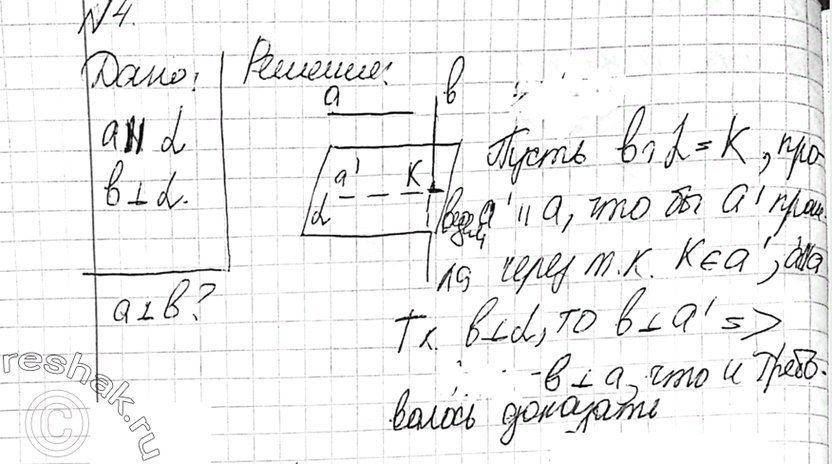 N4.
Дано: Решение:
a || α
b ⊥ α.
a ⊥ b?
a b
a' K
α
Пусть b ∩ α = K, про-
ведём a' || a, что бы a' прош-
ла через т.к. K ∈ a', a' || a
Т.к. b ⊥ α, то b ⊥ a' =>
b ⊥ a, что и требо-
валось доказать
reshak.ru
©